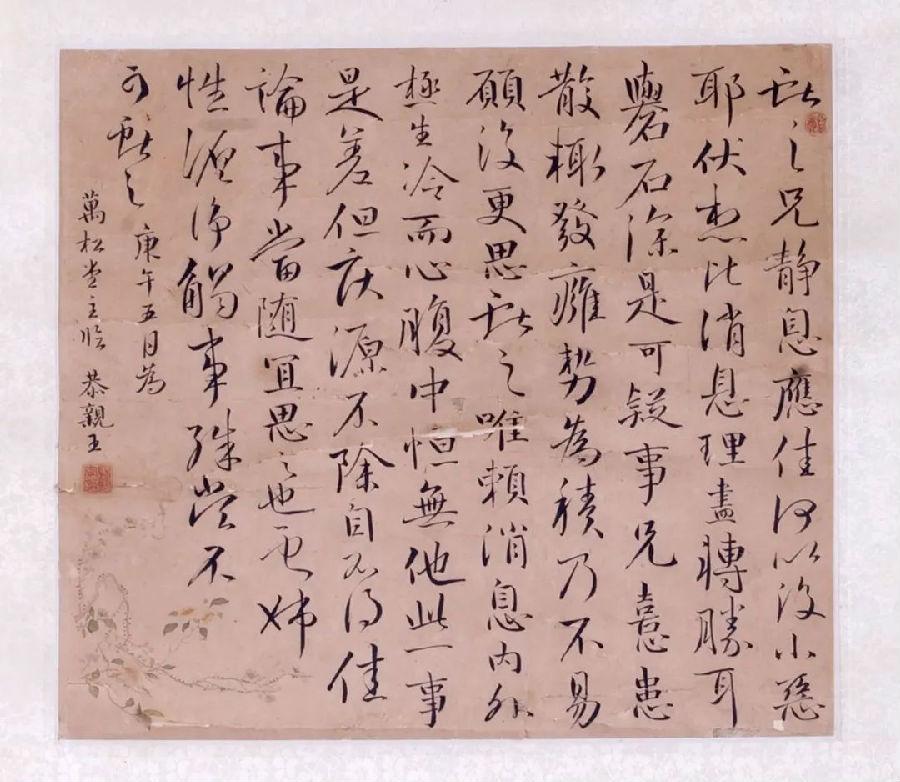 献之兄靜息應佳何以復小惡
耶伏想比消息理盡轉勝耳
礜石深是可疑事兄憙患
散輒發癰勢為積乃不易
願復更思献之唯賴消息內外
極生冷而心腹中恒無他此一事
是差但疾源不除自不得佳
論事當隨宜思之也姊
性源淨觸事殊當不
可献之 庚午五月為
萬松堂主臨 恭親王